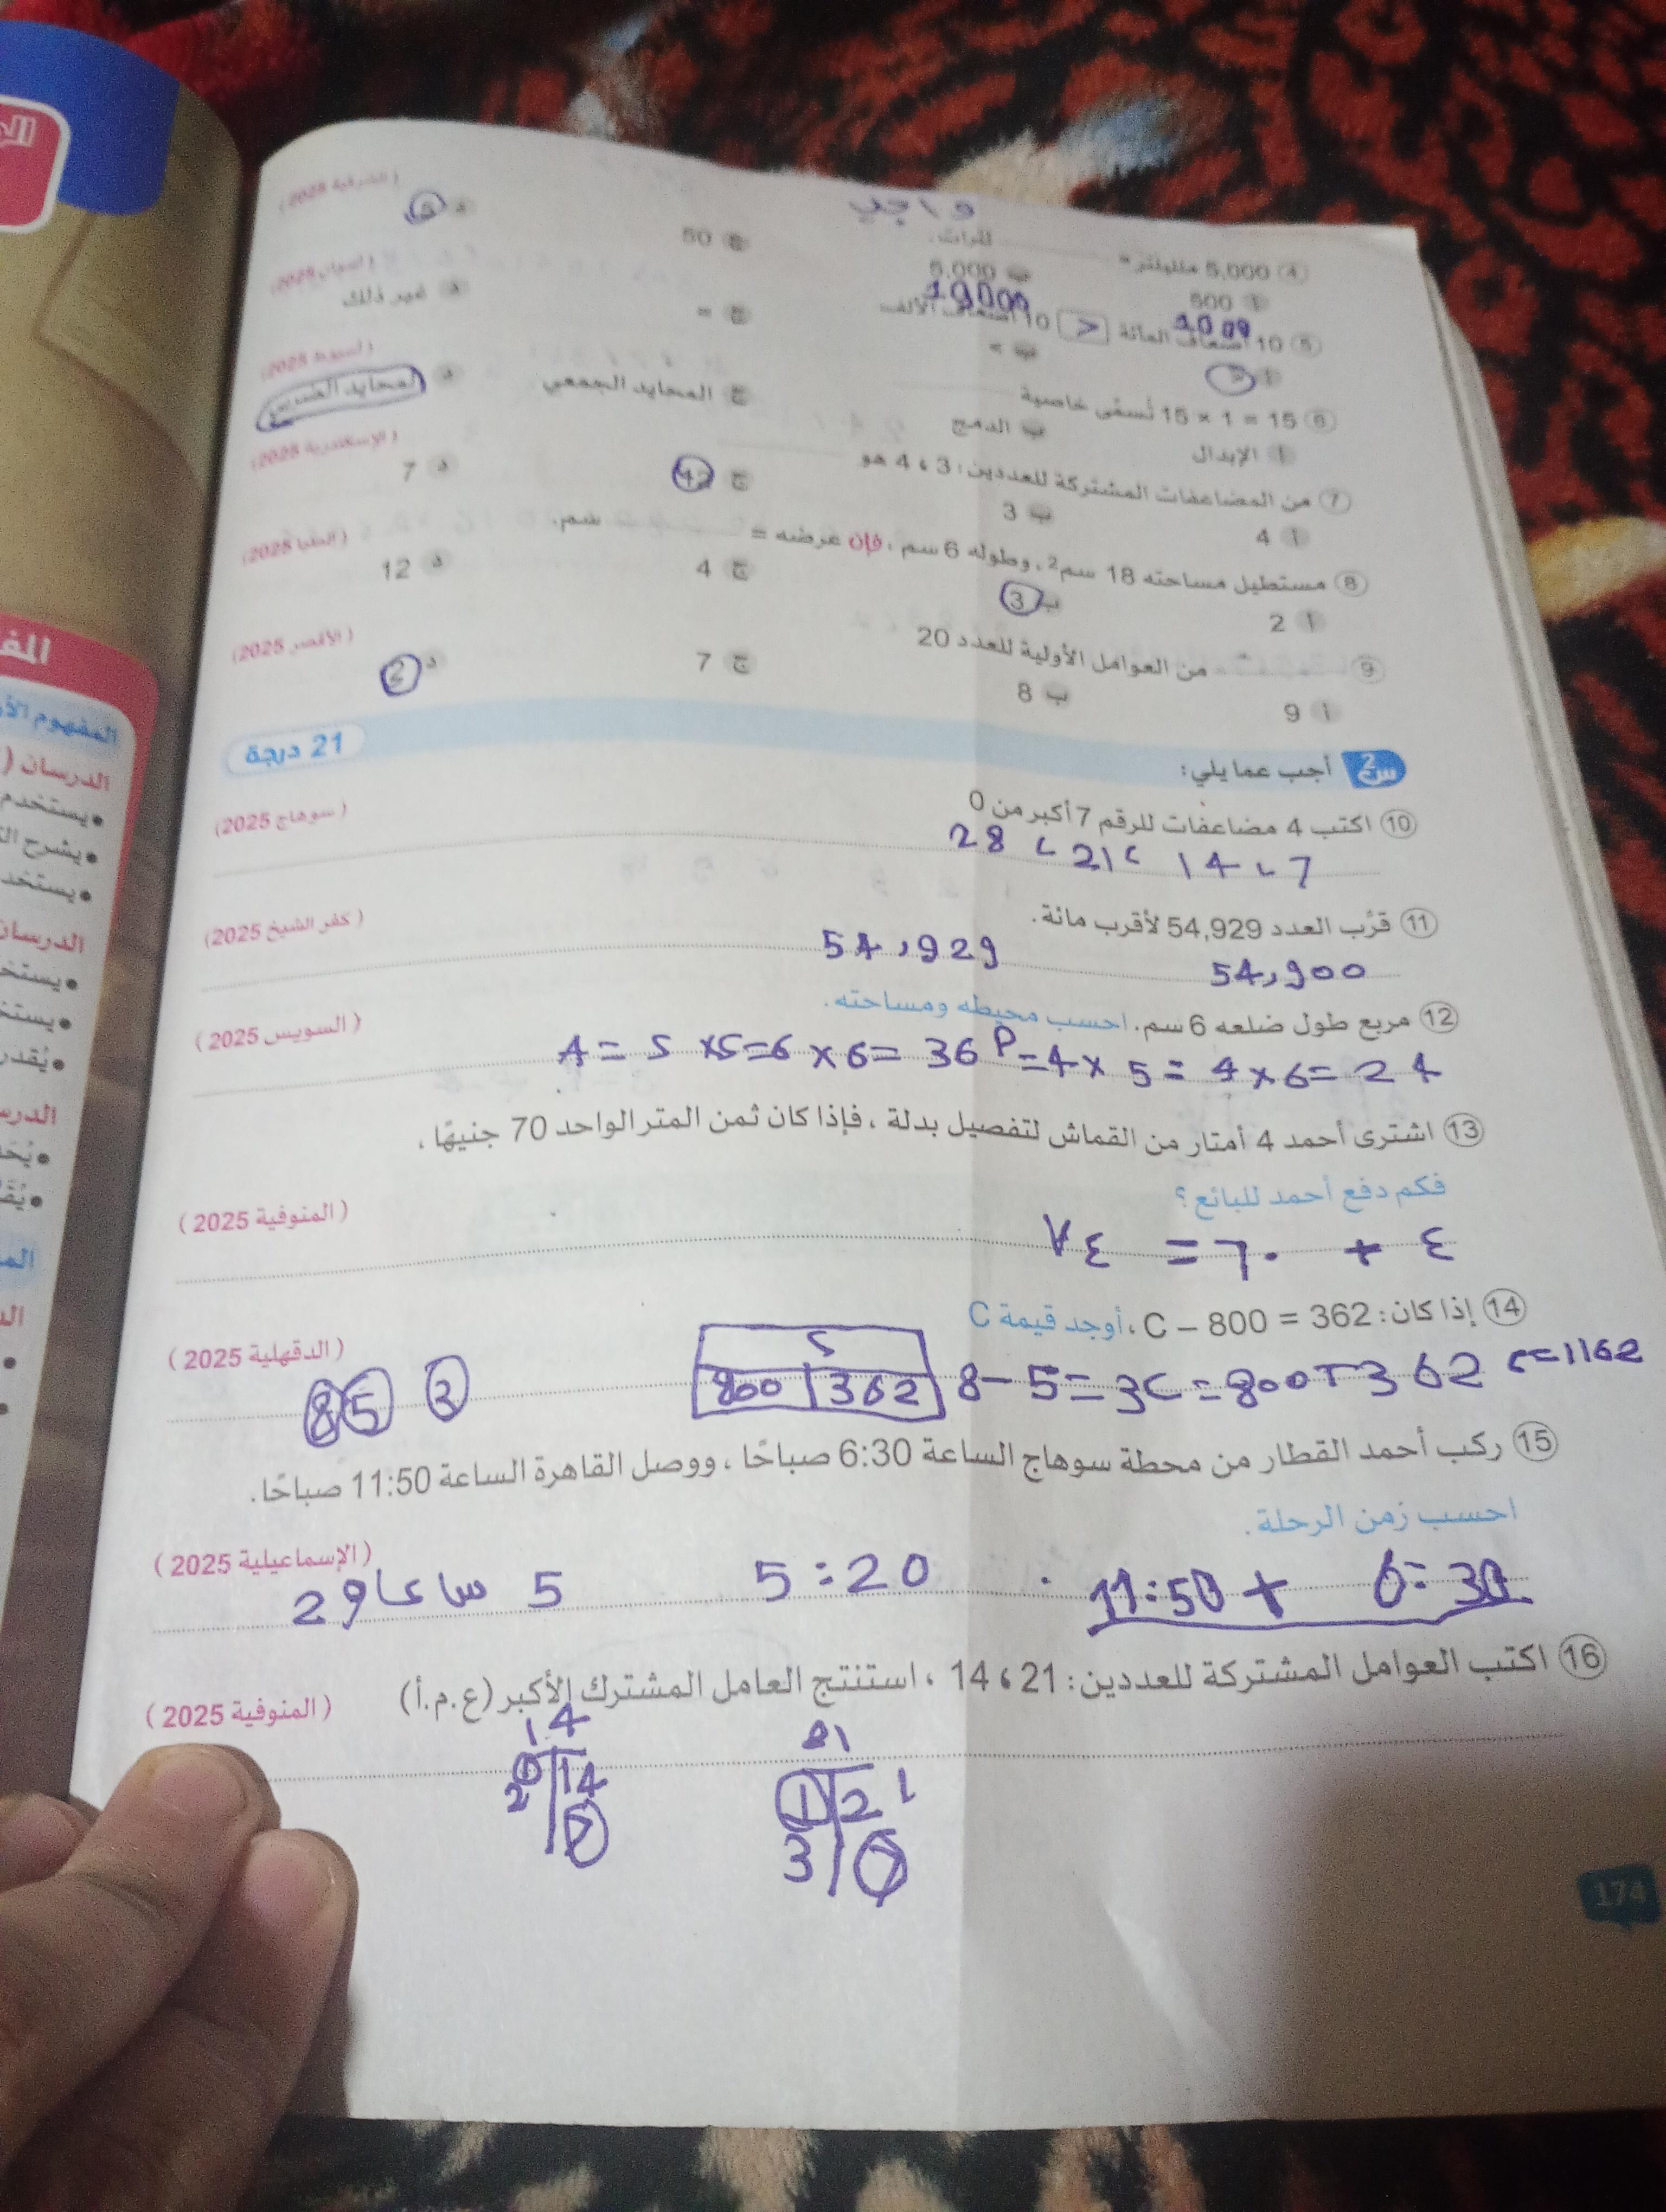 واجب
④ 5,000 ملليلتر = لترات. (الشرقية 2025)
أ 500 ب 5,000 ج 50 د 5
1000 10000
⑤ 10 أضعاف المائة > 10 أضعاف الألف (أسوان 2025)
ج = د غير ذلك
⑥ 15 × 1 = 15 تُسمَّى خاصية (أسيوط 2025)
أ الإبدال ب الدمج ج المحايد الجمعي د المحايد الضربي
⑦ من المضاعفات المشتركة للعددين: 3 ، 4 هو (الإسكندرية 2025)
أ 4 ب 3 ج 42 د 7
⑧ مستطيل مساحته 18 سم2، وطوله 6 سم، فإن عرضه = سم. (المنيا 2025)
أ 2 ب 3 ج 4 د 12
⑨ من العوامل الأولية للعدد 20 (الأقصر 2025)
أ 9 ب 8 ج 7 د 2
س2 أجب عما يلي: 21 درجة
⑩ اكتب 4 مضاعفات للرقم 7 أكبر من 0 (سوهاج 2025)
7 ، 14 ، 21 ، 28
⑪ قرِّب العدد 54,929 لأقرب مائة. (كفر الشيخ 2025)
54,900 54,929
⑫ مربع طول ضلعه 6 سم. احسب محيطه ومساحته. (السويس 2025)
A = S × S = 6 × 6 = 36 P = 4 × S = 4 × 6 = 24
⑬ اشترى أحمد 4 أمتار من القماش لتفصيل بدلة، فإذا كان ثمن المتر الواحد 70 جنيهًا،
فكم دفع أحمد للبائع؟ (المنوفية 2025)
٤ + ٦٠ = ٧٤
⑭ إذا كان: C – 800 = 362، أوجد قيمة C (الدقهلية 2025)
C
800 362
8 – 5 = 3 C = 800 + 362 C = 1162
8 5 3
⑮ ركب أحمد القطار من محطة سوهاج الساعة 6:30 صباحًا، ووصل القاهرة الساعة 11:50 صباحًا.
احسب زمن الرحلة. (الإسماعيلية 2025)
11:50 + 6:30 5:20 5 ساعات و 2
⑯ اكتب العوامل المشتركة للعددين: 21 ، 14 ، استنتج العامل المشترك الأكبر (ع.م.أ) (المنوفية 2025)
21 14
1 21 1 14
3 7 2 7
174
المف
المفهوم الأ
الدرسان (
• يستخدم
• يشرح
• يستخد
الدرسان
• يستخ
• يستخ
• يُقدر
الدر